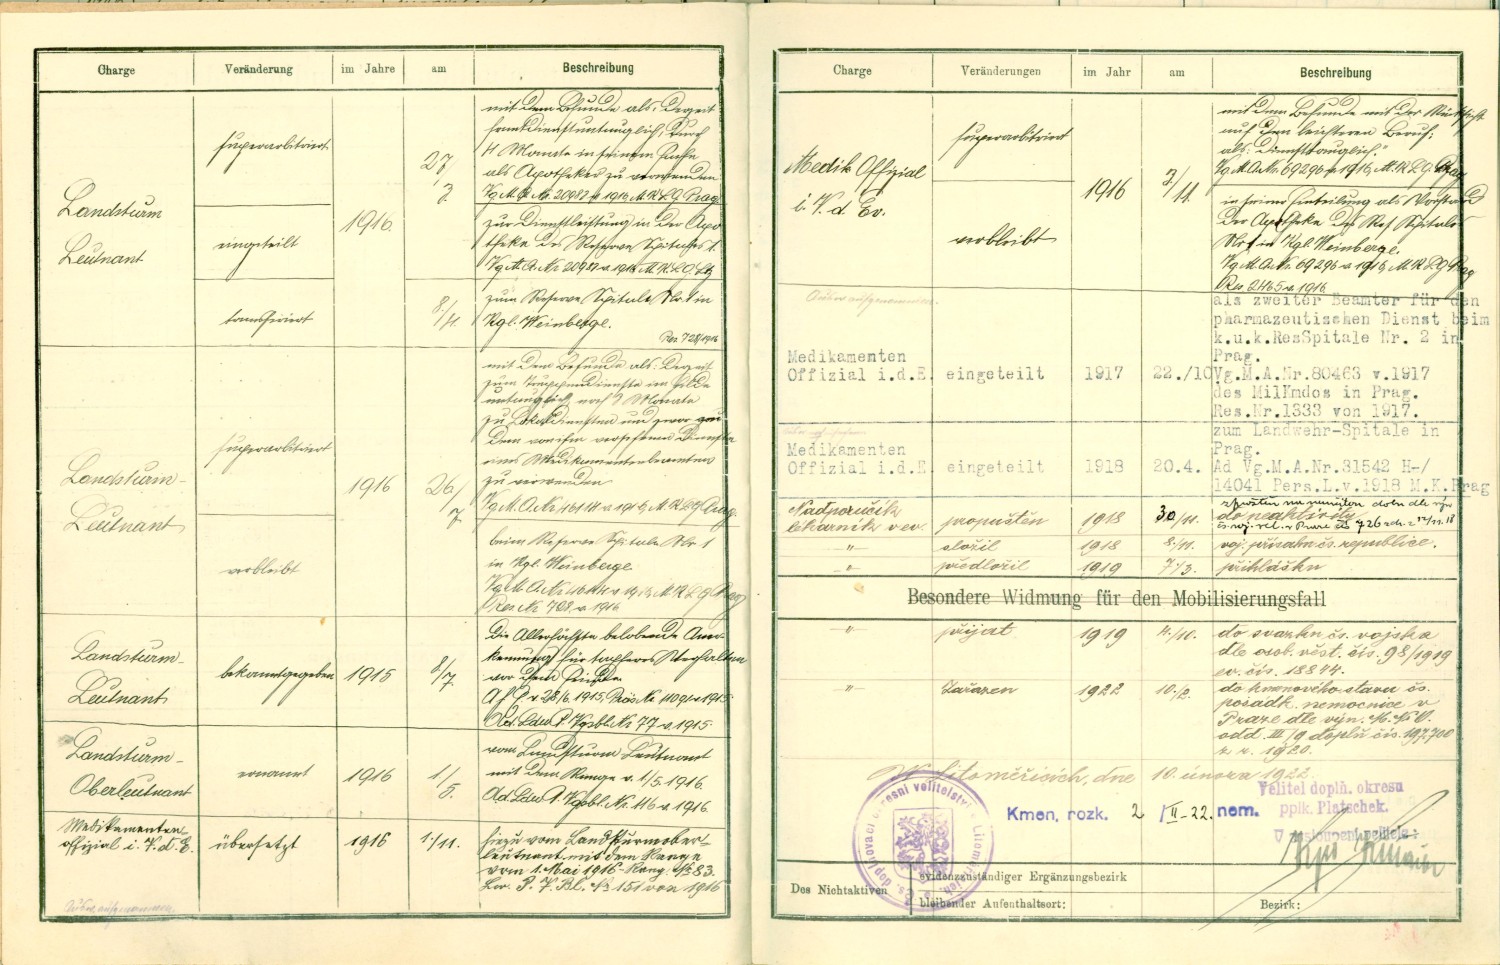 Charge Veränderung im Jahre am Beschreibung
Landsturm
Leutnant
superarbitriert
1916
27/3
mit dem Befunde als: derzeit
frontdiensttauglich, durch
4 Monate in seinem Fache
als Apotheker zu verwenden
Vg.M.A.Nr. 20987 v 1916, M.K.L.G. Prag.
eingeteilt
zur Dienstleistung in der Apo
theke des Reserve Spitales 1.
Vg.M.A.Nr 20987 v 1916 M.K.L.G.
transferiert
8/4.
zum Reserve Spitale Nr. 1 in
Kgl. Weinberge.
Res 728/1916
Landsturm-
Leutnant
superarbitriert
1916
26/7
mit dem Befunde als: derzeit
zum Truppendienste im Felde
untauglich, nach Monate
zu Lokaldiensten und zwar
dem von ihm versehenen Dienste
eines Medikamentenbeamten
zu verwenden
Vg.M.A.Nr. 46144 v 1916, M.K.L.G. Prag.
verbleibt
beim Reserve Spitale Nr 1
in Kgl. Weinberge
Vg.M.A.Nr 46144 v 1916, M.K.L.G. Prag
Res Nr 708 v 1916
Landsturm-
Leutnant
bekanntgegeben 1915 8/7.
die Allerhöchste belobende Aner-
kennung für tapferes Verhalten
vor dem Feinde.
v 28/6. 1915, Präs Nr v 1915
Vgsbl. Nr 77 v 1915.
Landsturm-
Oberleutnant
ernannt 1916 1/5.
vom Landsturm Leutnant
mit dem Range v. 1/5 1916.
Vgsbl. Nr. 116 v 1916.
Medikamenten
offizial i. V. d. E.
übersetzt 1916 1./11.
hiezu vom Landsturmober-
leutnant mit dem Range
vom 1. Mai 1916 - Rang: Nr 83.
P. V. Bl. Nr. 151 von 1916
Charge Veränderungen im Jahr am Beschreibung
Medik Offizial
i. V. d. Ev.
superarbitriert
1916
3/11.
mit dem Befunde mit der Rücksicht
auf den leichteren Beruf:
als: "diensttauglich."
Vg.M.A.Nr. 69296 v 1916, M.K.L.G. Prag
verbleibt
in seiner Einteilung als Vorstand
der Apotheke des Res Spitales
Nr 1 in Kgl. Weinberge.
Vg.M.A.Nr. 69296 v 1916, M.K.L.G. Prag
Res. 2465 v. 1916
Medikamenten
Offizial i.d.E. eingeteilt 1917 22./10
als zweiter Beamter für den
pharmazeutischen Dienst beim
k.u.k.ResSpitale Nr. 2 in
Prag.
Vg.M.A.Nr.80463 v.1917
des MilKmdos in Prag.
Res.Nr.1333 von 1917.
Medikamenten
Offizial i.d.E. eingeteilt 1918 20.4.
zum Landwehr-Spitale in
Prag.
Ad Vg.M.A.Nr.31542 H-/
14041 Pers.L.v.1918 M.K.Prag
Nadporučík
lékárník v ev. propuštěn 1918 30/11.
do neaktivity
-"- složil 1918 8./11. voj. přísahu čs. republice.
-"- předložil 1919 7./3. přihlášku
Besondere Widmung für den Mobilisierungsfall
-"- přijat 1919 4./10. do svazku čs. vojska
dle osob. věst. čís. 98/1919
ev. čís. 18844.
-"- Zařazen 1922 10./2. do kmenového stavu čs.
posádk. nemocnice v
Praze dle výn. M.N.O.
odd. III/9 doplň čís. 197.700
z r. 1920.
V Litoměřicích, dne 10. února 1922.
Kmen. rozk. 2 /II-22. nem.
Velitel doplň. okresu
pplk. Platschek.
V zastoupení velitele:
Des Nichtaktiven
evidenzzuständiger Ergänzungsbezirk
bleibender Aufenthaltsort: Bezirk: